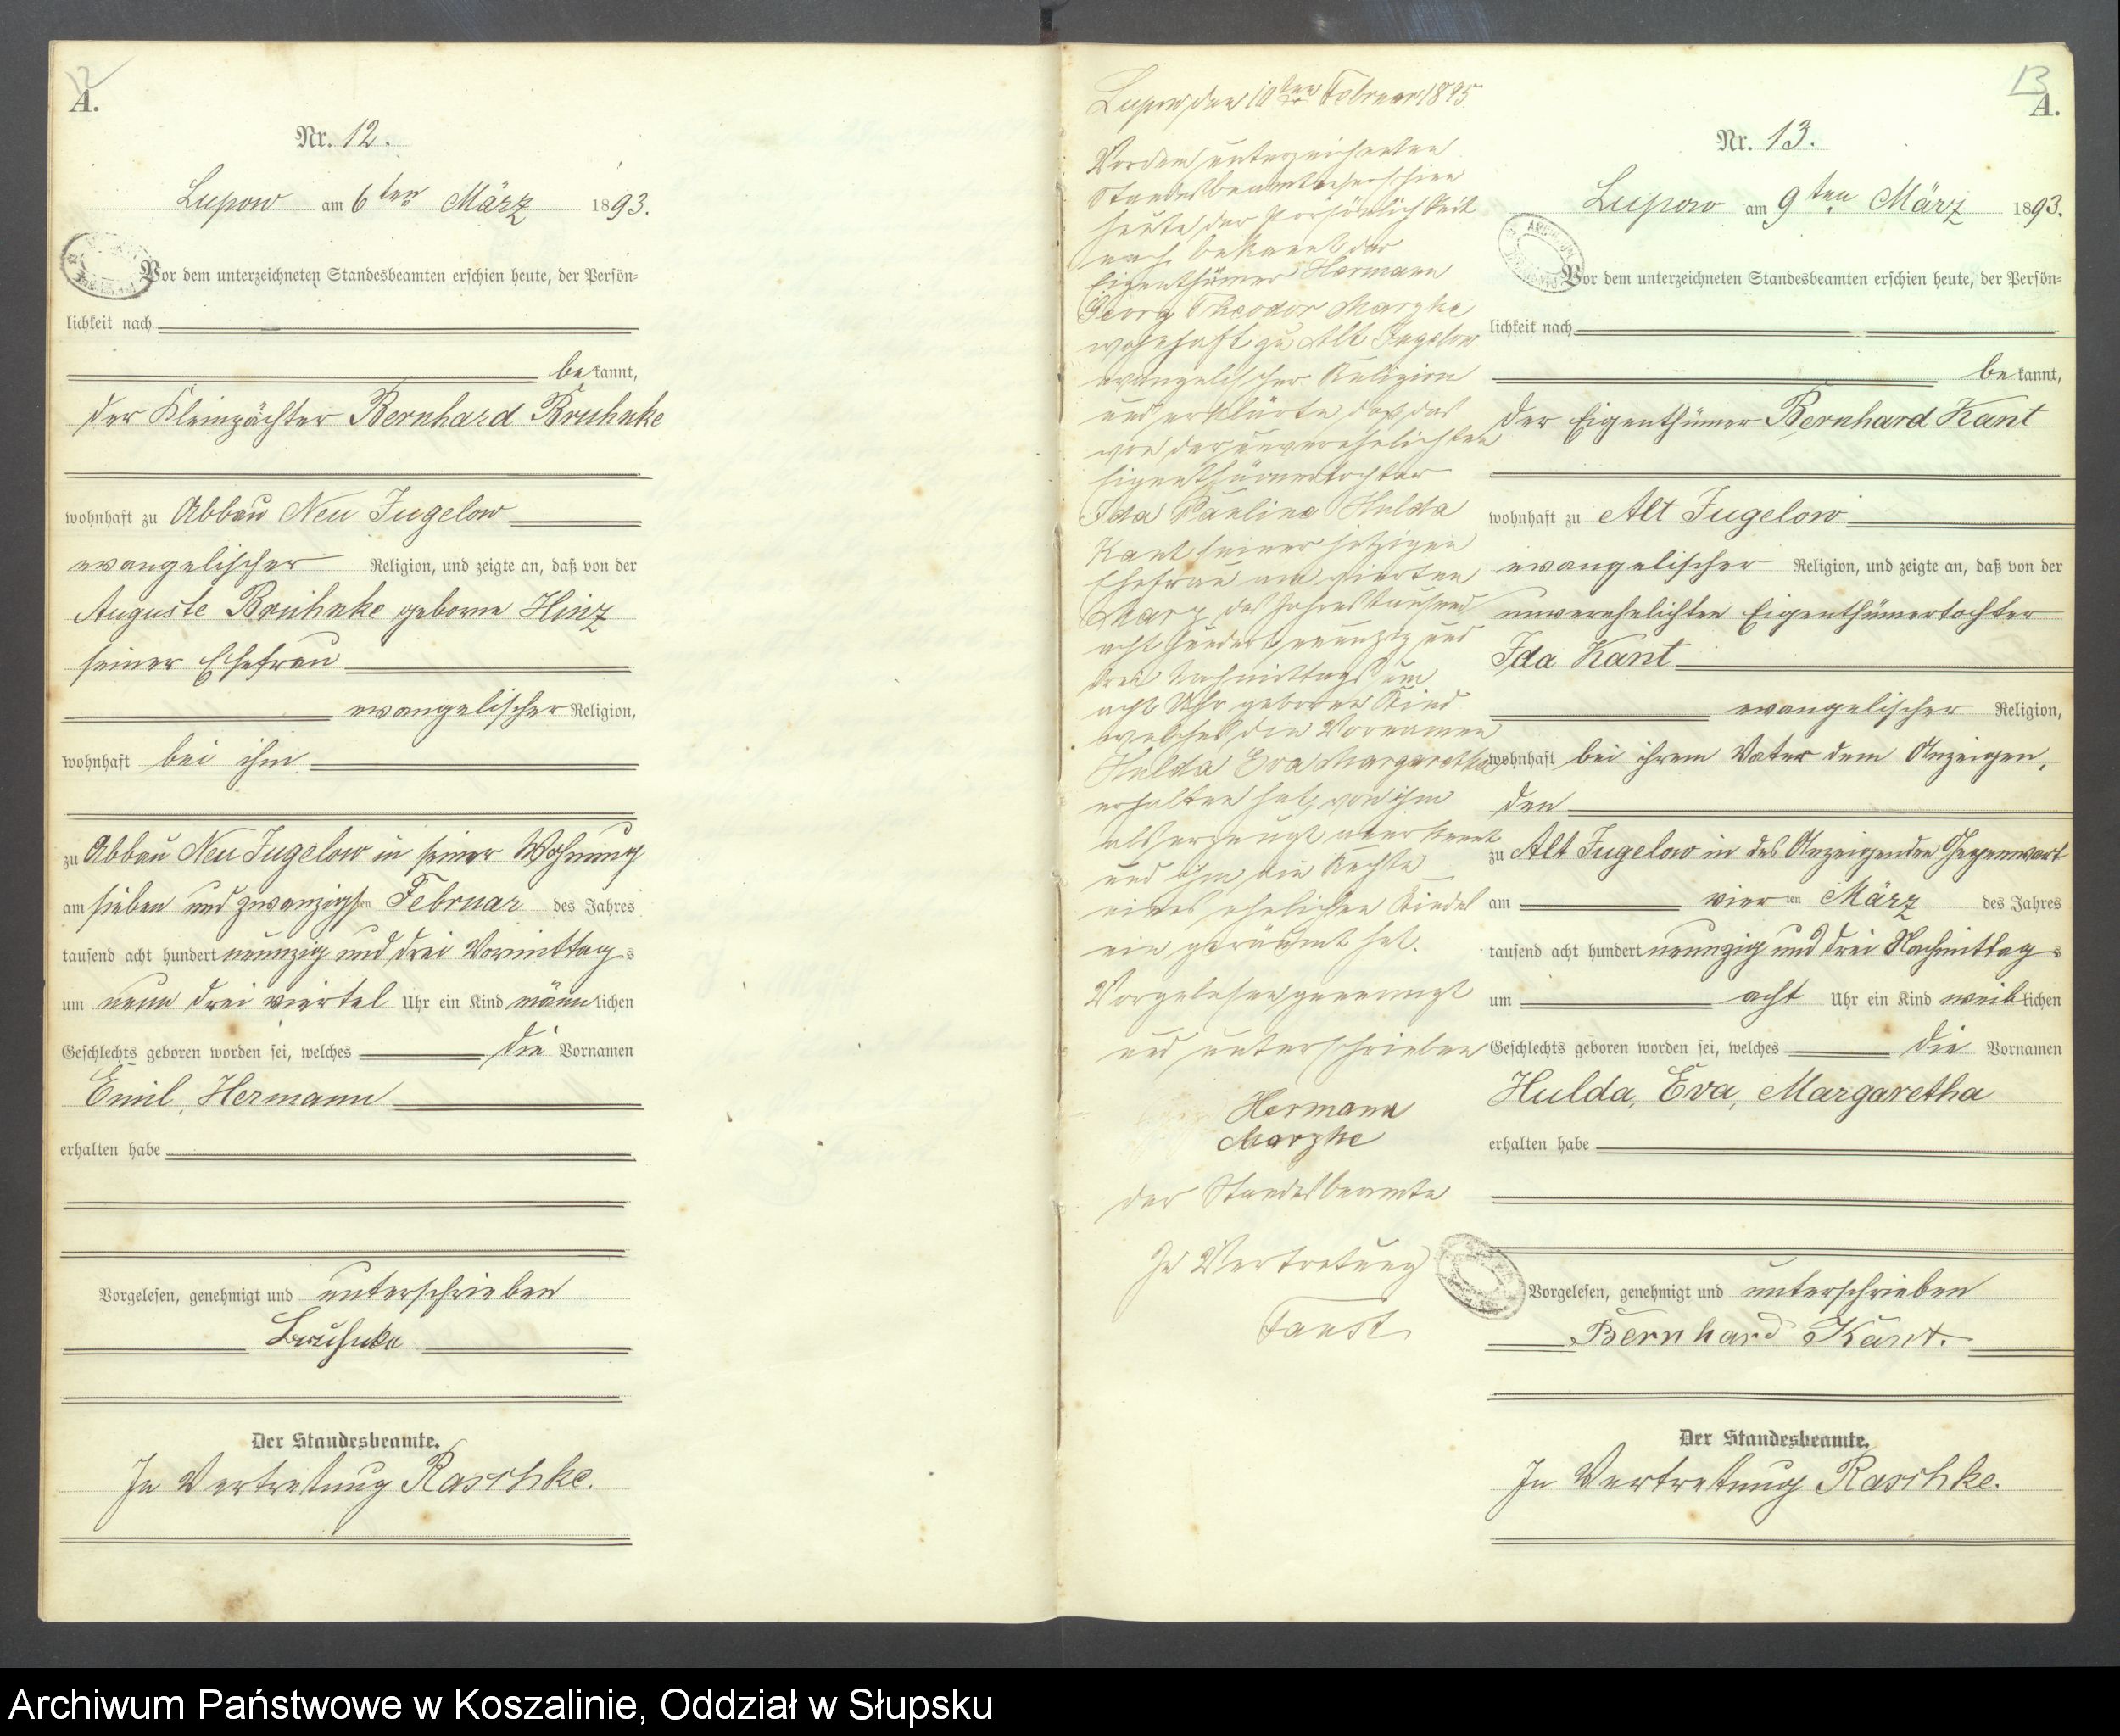 12
A.
Nr. 12.
Lupow am 6ten März 1893.
Vor dem unterzeichneten Standesbeamten erschien heute, der Persön=
lichkeit nach
bekannt,
der Kleinpächter Bernhard Bruhnke
wohnhaft zu Abbau Neu Jugelow
evangelischer Religion, und zeigte an, daß von der
Auguste Bruhnke geborne Hinz
seiner Ehefrau
evangelischer Religion,
wohnhaft bei ihm
zu Abbau Neu Jugelow in seiner Wohnung
am sieben und zwanzigsten Februar des Jahres
tausend acht hundert neunzig und drei Vormittags
um neun drei viertel Uhr ein Kind männlichen
Geschlechts geboren worden sei, welches die Vornamen
Emil, Hermann
erhalten habe
Vorgelesen, genehmigt und unterschrieben
Bruhnke
Der Standesbeamte.
In Vertretung Raschke.
Lupow den 10ten Februar 1895.
Vor dem unterzeichneten
Standesbeamten erschien
heute der Persönlichkeit
nach bekannt der
Eigenthümer Hermann
Georg Theodor Marzke
wohnhaft zu Alt Jugelow
evangelischer Religion
und erklärte, daß das
von der unverehelichten
Eigenthümertochter
Ida Pauline Hulda
Kant seiner jetzigen
Ehefrau am vierten
März des Jahres tausend
acht hundert neunzig und
drei Nachmittags um
acht Uhr geborene Kind
welches die Vornamen
Hulda Eva Margaretha
erhalten hat, von ihm
als erzeugt anerkannt
und ihm die Rechte
eines ehelichen Kindes
ein geräumt hat.
Vorgelesen genemigt
und unterschrieben
Hermann
Marzke
der Standesbeamte
In Vertretung
Faust
13
A.
Nr. 13.
Lupow am 9ten März 1893.
Vor dem unterzeichneten Standesbeamten erschien heute, der Persön=
lichkeit nach
bekannt,
der Eigenthümer Bernhard Kant
wohnhaft zu Alt Jugelow
evangelischer Religion, und zeigte an, daß von der
unverehelichten Eigenthümertochter
Ida Kant
evangelischer Religion,
wohnhaft bei ihrem Vater dem Anzeigen,
den
zu Alt Jugelow in des Anzeigenden Gegenwart
am vierten März des Jahres
tausend acht hundert neunzig und drei Nachmittags
um acht Uhr ein Kind weiblichen
Geschlechts geboren worden sei, welches die Vornamen
Hulda, Eva, Margaretha
erhalten habe
Vorgelesen, genehmigt und unterschrieben
Bernhard Kant.
Der Standesbeamte.
In Vertretung Raschke.
Archiwum Państwowe w Koszalinie, Oddział w Słupsku